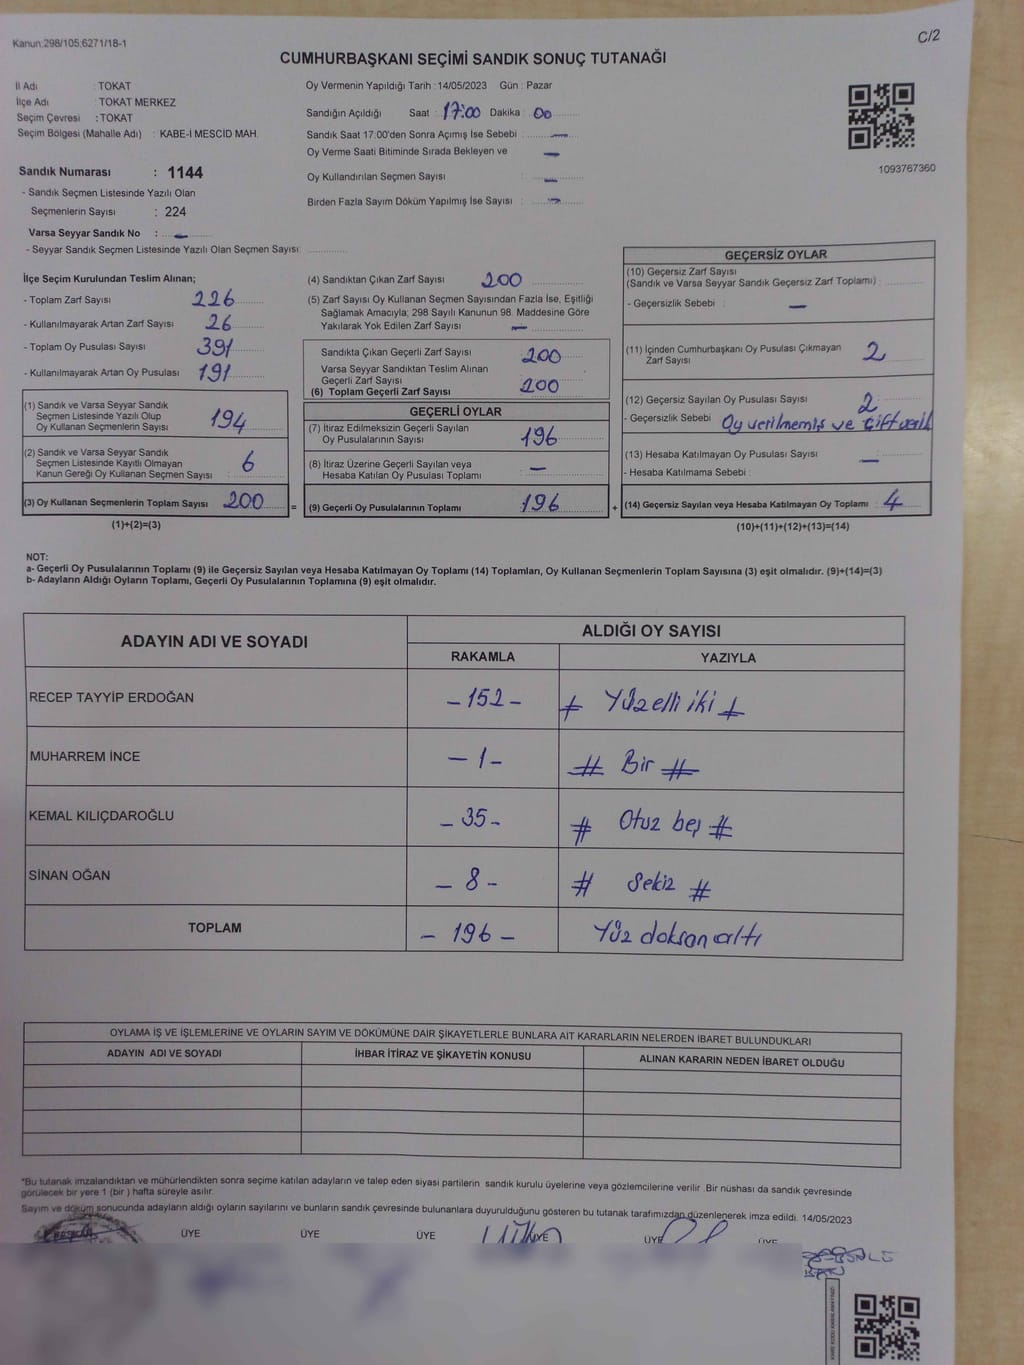 Kanun:298/105;6271/18-1
C/2
CUMHURBAŞKANI SEÇİMİ SANDIK SONUÇ TUTANAĞI
İl Adı : TOKAT
İlçe Adı : TOKAT MERKEZ
Seçim Çevresi : TOKAT
Seçim Bölgesi (Mahalle Adı) : KABE-İ MESCİD MAH.
Sandık Numarası : 1144
- Sandık Seçmen Listesinde Yazılı Olan
Seçmenlerin Sayısı : 224
Varsa Seyyar Sandık No : –
- Seyyar Sandık Seçmen Listesinde Yazılı Olan Seçmen Sayısı:
Oy Vermenin Yapıldığı Tarih : 14/05/2023 Gün : Pazar
Sandığın Açıldığı Saat : 17:00 Dakika : 00
Sandık Saat 17:00'den Sonra Açımış İse Sebebi : —
Oy Verme Saati Bitiminde Sırada Bekleyen ve —
Oy Kullandırılan Seçmen Sayısı : —
Birden Fazla Sayım Döküm Yapılmış İse Sayısı : —
1093767360
İlçe Seçim Kurulundan Teslim Alınan;
- Toplam Zarf Sayısı 226
- Kullanılmayarak Artan Zarf Sayısı 26
- Toplam Oy Pusulası Sayısı 391
- Kullanılmayarak Artan Oy Pusulası 191
(1) Sandık ve Varsa Seyyar Sandık
Seçmen Listesinde Yazılı Olup
Oy Kullanan Seçmenlerin Sayısı : 194
(2) Sandık ve Varsa Seyyar Sandık
Seçmen Listesinde Kayıtlı Olmayan
Kanun Gereği Oy Kullanan Seçmen Sayısı : 6
(3) Oy Kullanan Seçmenlerin Toplam Sayısı : 200
(1)+(2)=(3)
(4) Sandıktan Çıkan Zarf Sayısı 200
(5) Zarf Sayısı Oy Kullanan Seçmen Sayısından Fazla İse, Eşitliği
Sağlamak Amacıyla; 298 Sayılı Kanunun 98. Maddesine Göre
Yakılarak Yok Edilen Zarf Sayısı : —
Sandıkta Çıkan Geçerli Zarf Sayısı : 200
Varsa Seyyar Sandıktan Teslim Alınan
Geçerli Zarf Sayısı :
(6) Toplam Geçerli Zarf Sayısı : 200
GEÇERLİ OYLAR
(7) İtiraz Edilmeksizin Geçerli Sayılan
Oy Pusulalarının Sayısı : 196
(8) İtiraz Üzerine Geçerli Sayılan veya
Hesaba Katılan Oy Pusulası Toplamı : —
= (9) Geçerli Oy Pusulalarının Toplamı : 196 +
GEÇERSİZ OYLAR
(10) Geçersiz Zarf Sayısı
(Sandık ve Varsa Seyyar Sandık Geçersiz Zarf Toplamı) :
- Geçersizlik Sebebi : —
(11) İçinden Cumhurbaşkanı Oy Pusulası Çıkmayan
Zarf Sayısı : 2
(12) Geçersiz Sayılan Oy Pusulası Sayısı : 2
- Geçersizlik Sebebi : Oy verilmemiş ve çift
(13) Hesaba Katılmayan Oy Pusulası Sayısı : —
- Hesaba Katılmama Sebebi :
(14) Geçersiz Sayılan veya Hesaba Katılmayan Oy Toplamı : 4
(10)+(11)+(12)+(13)=(14)
NOT:
a- Geçerli Oy Pusulalarının Toplamı (9) ile Geçersiz Sayılan veya Hesaba Katılmayan Oy Toplamı (14) Toplamları, Oy Kullanan Seçmenlerin Toplam Sayısına (3) eşit olmalıdır. (9)+(14)=(3)
b- Adayların Aldığı Oyların Toplamı, Geçerli Oy Pusulalarının Toplamına (9) eşit olmalıdır.
ADAYIN ADI VE SOYADI ALDIĞI OY SAYISI
RAKAMLA YAZIYLA
RECEP TAYYİP ERDOĞAN –152– # Yüzelli iki #
MUHARREM İNCE –1– # Bir #
KEMAL KILIÇDAROĞLU –35– # Otuz beş #
SİNAN OĞAN –8– # Sekiz #
TOPLAM –196– Yüz doksan altı
OYLAMA İŞ VE İŞLEMLERİNE VE OYLARIN SAYIM VE DÖKÜMÜNE DAİR ŞİKAYETLERLE BUNLARA AİT KARARLARIN NELERDEN İBARET BULUNDUKLARI
ADAYIN ADI VE SOYADI İHBAR İTİRAZ VE ŞİKAYETİN KONUSU ALINAN KARARIN NEDEN İBARET OLDUĞU
*Bu tutanak imzalandıktan ve mühürlendikten sonra seçime katılan adayların ve talep eden siyasi partilerin sandık kurulu üyelerine veya gözlemcilerine verilir. Bir nüshası da sandık çevresinde
görülecek bir yere 1 (bir) hafta süreyle asılır.
Sayım ve döküm sonucunda adayların aldığı oyların sayılarını ve bunların sandık çevresinde bulunanlara duyurulduğunu gösteren bu tutanak tarafımızdan düzenlenerek imza edildi. 14/05/2023
ÜYE ÜYE ÜYE ÜYE ÜYE ÜYE